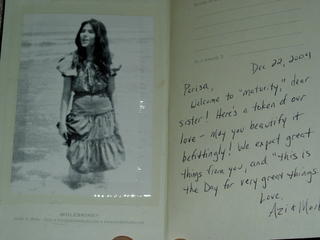 MOLESKINE®
Dec 22, 2004
Parisa,
Welcome to "maturity," dear
sister! Here's a token of our
love - may you beautify it
befittingly! We expect great
things from you, and "this is
the Day for very great things
Love,
Azi &